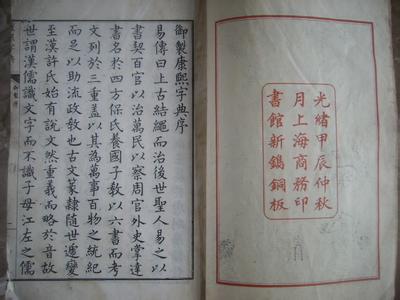 光緒甲辰仲秋
月上海商務印
書館新鐫銅板
御製康熙字典序
易傳曰上古結繩而治後世聖人易之以
書契百官以治萬民以察周官外史掌達
書名於四方保氏養國子教以六書而考
文列於三重蓋以其為萬事百物之統紀
而足以助流政教也古文篆隸隨世遞變
至漢許氏始有說文然重義而略於音故
世謂漢儒識文字而不識子母江左之儒